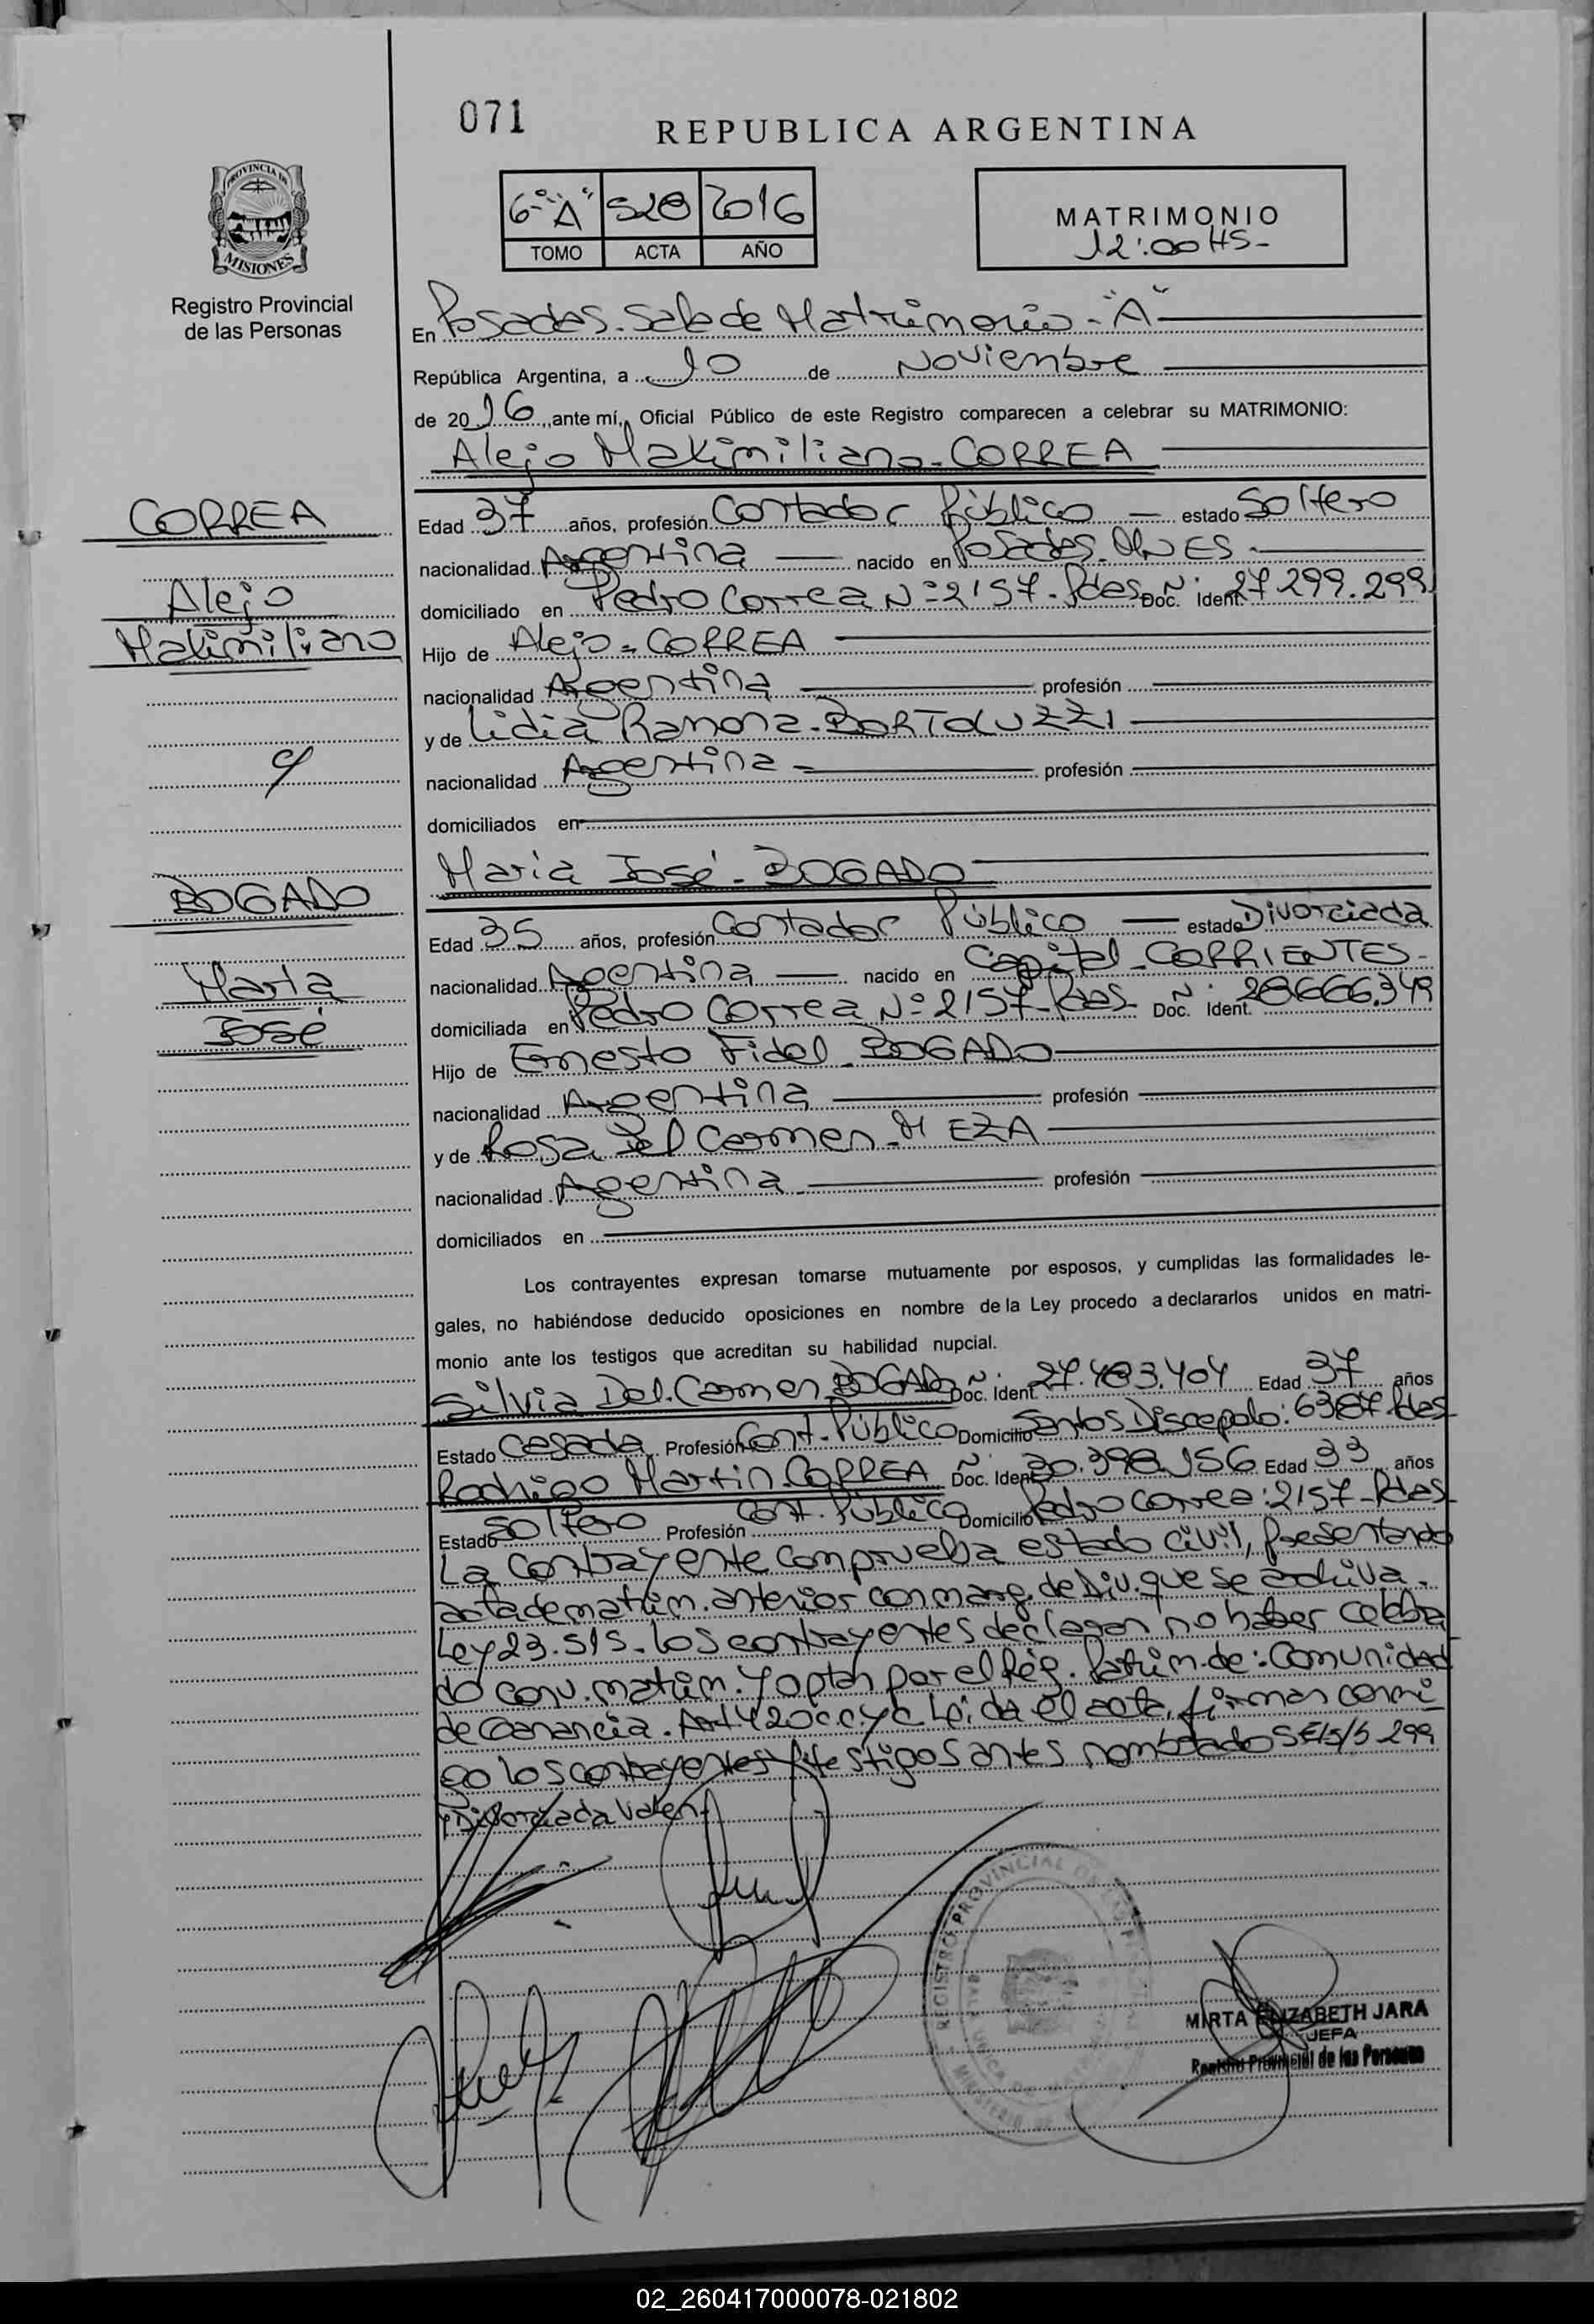 071
REPUBLICA ARGENTINA
PROVINCIA DE
MISIONES
Registro Provincial
de las Personas
6º "A" 528 2016
TOMO ACTA AÑO
MATRIMONIO
12:00 HS-
En Posadas. Sala de Matrimonio - "A"
República Argentina, a 10 de Noviembre
de 2016, ante mí, Oficial Público de este Registro comparecen a celebrar su MATRIMONIO:
Alejo Maximiliano - CORREA
CORREA
Alejo
Maximiliano
c/
BOGADO
María
José
Edad 37 años, profesión Contador Público estado Soltero
nacionalidad Argentina nacido en Posadas. MNES.
domiciliado en Pedro Correa Nº 2157 - Pdas Doc. Ident. Nº 27.299.299
Hijo de Alejo = CORREA
nacionalidad Argentina profesión
y de Lidia Ramona - BORTOLUZZI
nacionalidad Argentina profesión
domiciliados en
María José - BOGADO
Edad 35 años, profesión Contador Público estado Divorciada
nacionalidad Argentina nacido en Capital - CORRIENTES -
domiciliada en Pedro Correa Nº 2157 - Pdas - Doc. Ident. Nº 28.666.349
Hijo de Ernesto Fidel - BOGADO
nacionalidad Argentina profesión
y de Rosa Del Carmen - MEZA
nacionalidad Argentina profesión
domiciliados en
Los contrayentes expresan tomarse mutuamente por esposos, y cumplidas las formalidades le-
gales, no habiéndose deducido oposiciones en nombre de la Ley procedo a declararlos unidos en matri-
monio ante los testigos que acreditan su habilidad nupcial.
Silvia Del Carmen BOGADO Doc. Ident. Nº 27.483.404 Edad 37 años
Estado Casada Profesión Cont. Público Domicilio Santos Discepolo: 6387 - Pdas
Rodrigo Martin CORREA Doc. Ident. Nº 30.398.156 Edad 33 años
Estado Soltero Profesión Cont. Público Domicilio Pedro Correa: 2157 - Pdas
La contrayente comprueba estado civil, presentando
acta de matrim. anterior con marg. de Div. que se archiva.
Ley 23.515. los contrayentes declaran no haber celebra
do conv. matrim. y optan por el Rég. Patrim. de: Comunidad
de Ganancia. Art. 420 c.c.y c Leida el acta, firman conmi
go los contrayentes y testigos antes nombrados E/s/b 299
y Divorciada Valen
REGISTRO PROVINCIAL DE LAS
MIRTA ELIZABETH JARA
JEFA
Registro Provincial de las Personas
02_260417000078-021802